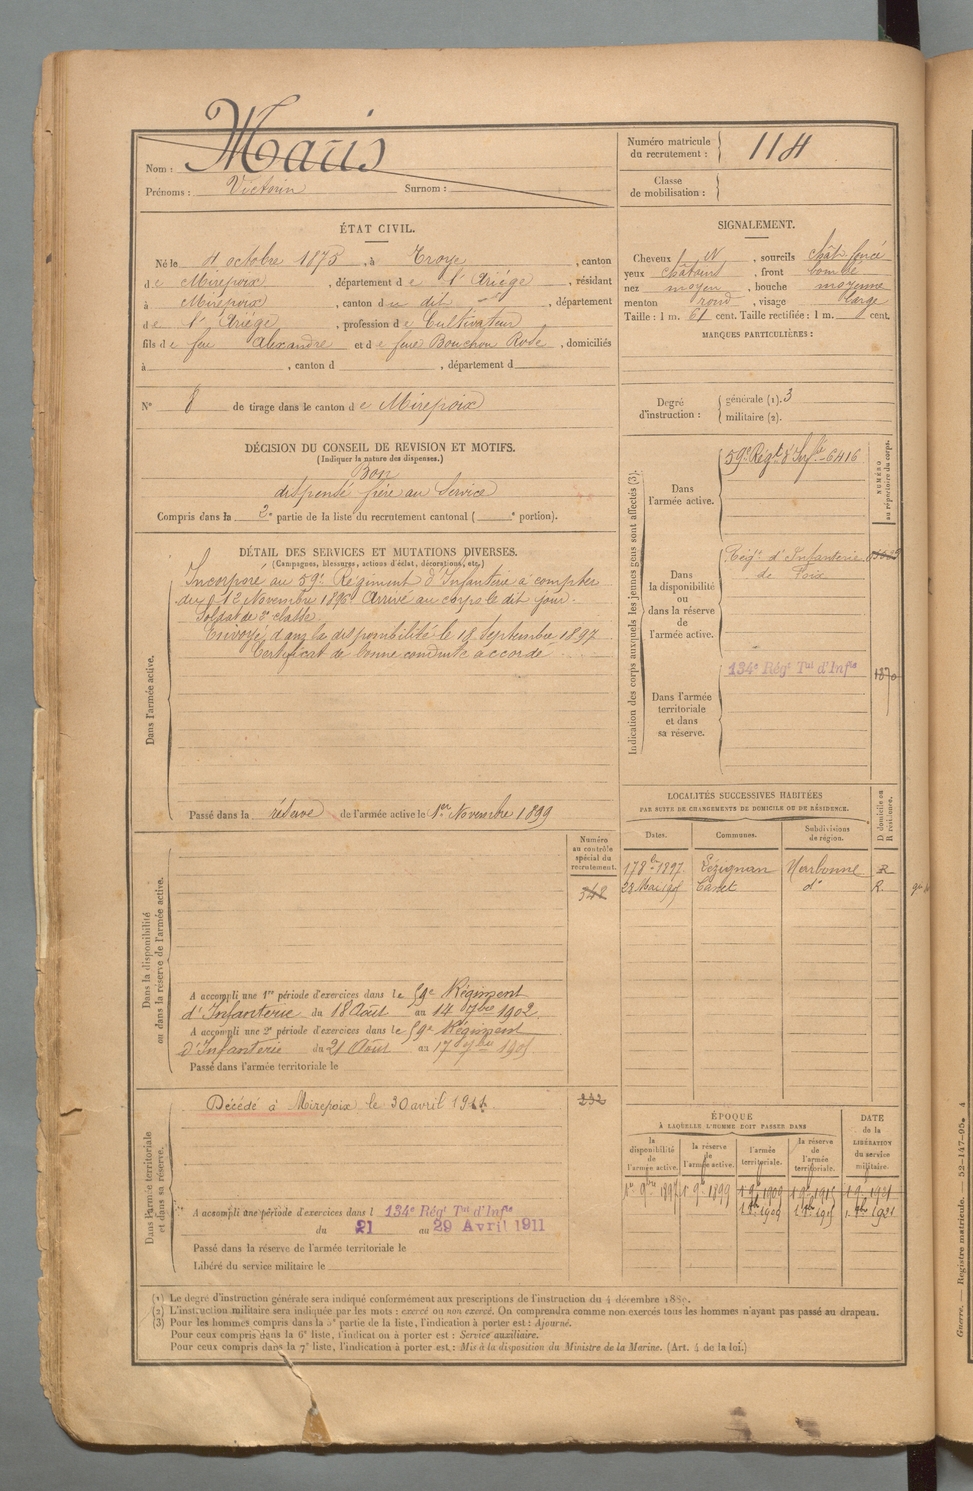 Nom : Maris
Prénoms : Victorin Surnom :
Numéro matricule du recrutement : 114
Classe de mobilisation :
ÉTAT CIVIL.
Né le 4 octobre 1875, à Troye, canton
de Mirepoix, département de l'Ariège, résidant
à Mirepoix, canton du dit, département
de l'Ariège, profession de Cultivateur
fils de feu Alexandre et de feue Bouchon Rose, domiciliés
à , canton d , département d
N° 8 de tirage dans le canton de Mirepoix
SIGNALEMENT.
Cheveux , sourcils chât. foncé
yeux châtains, front bombé
nez moyen, bouche moyenne
menton rond, visage large
Taille : 1 m. 61 cent. Taille rectifiée : 1 m. cent.
MARQUES PARTICULIÈRES :
Degré d'instruction : générale (1). 3
militaire (2).
DÉCISION DU CONSEIL DE REVISION ET MOTIFS.
(Indiquer la nature des dispenses.)
Bon
dispensé frère au Service
Compris dans la 2e partie de la liste du recrutement cantonal ( e portion).
DÉTAIL DES SERVICES ET MUTATIONS DIVERSES.
(Campagnes, blessures, actions d'éclat, décorations, etc.)
Dans l'armée active.
Incorporé au 59e Régiment d'Infanterie à compter
du 12 Novembre 1896. Arrivé au corps le dit jour.
Soldat de 2e classe
Envoyé dans la disponibilité le 18 Septembre 1897
Certificat de bonne conduite accordé
Passé dans la réserve de l'armée active le 1er Novembre 1899
Indication des corps auxquels les jeunes gens sont affectés (3).
NUMÉRO au répertoire du corps.
Dans l'armée active.
59e Régt d'Infie 6416
Dans la disponibilité ou dans la réserve de l'armée active.
Régt d'Infanterie
de Foix
Dans l'armée territoriale et dans sa réserve.
134e Régt Tal d'Infie
1870
LOCALITÉS SUCCESSIVES HABITÉES
PAR SUITE DE CHANGEMENTS DE DOMICILE OU DE RÉSIDENCE.
Dates. Communes. Subdivisions de région. D domicile ou R résidence.
17 8bre 1897 Lézignan Narbonne R
28 Mai 1905 Canet do R.
Dans la disponibilité ou dans la réserve de l'armée active.
Numéro au contrôle spécial du recrutement.
348
A accompli une 1re période d'exercices dans le 59e Régiment
d'Infanterie du 18 Août au 14 7bre 1902
A accompli une 2e période d'exercices dans le 59e Régiment
d'Infanterie du 21 Août au 17 7bre 1905
Passé dans l'armée territoriale le
Dans l'armée territoriale et dans sa réserve.
Décédé à Mirepoix le 30 avril
232
A accompli une période d'exercices dans l 134e Régt Tal d'Infie
du 21 au 29 Avril 1911
Passé dans la réserve de l'armée territoriale le
Libéré du service militaire le
ÉPOQUE
À LAQUELLE L'HOMME DOIT PASSER DANS
la disponibilité de l'armée active. la réserve de l'armée active. l'armée territoriale. la réserve de l'armée territoriale. DATE de la LIBÉRATION du service militaire.
1er 9bre 1897 1 9b 1899 1 9b 1909 1 9b 1915 1 9b 1921
1 8bre 1909 1 8bre 1915 1 8bre 1921
(1) Le degré d'instruction générale sera indiqué conformément aux prescriptions de l'instruction du 4 décembre 1889.
(2) L'instruction militaire sera indiquée par les mots : exercé ou non exercé. On comprendra comme non exercés tous les hommes n'ayant pas passé au drapeau.
(3) Pour les hommes compris dans la 5e partie de la liste, l'indication à porter est : Ajourné.
Pour ceux compris dans la 6e liste, l'indication à porter est : Service auxiliaire.
Pour ceux compris dans la 7e liste, l'indication à porter est : Mis à la disposition du Ministre de la Marine. (Art. 4 de la loi.)
Guerre. — Registre matricule. — 52-147-95. 4